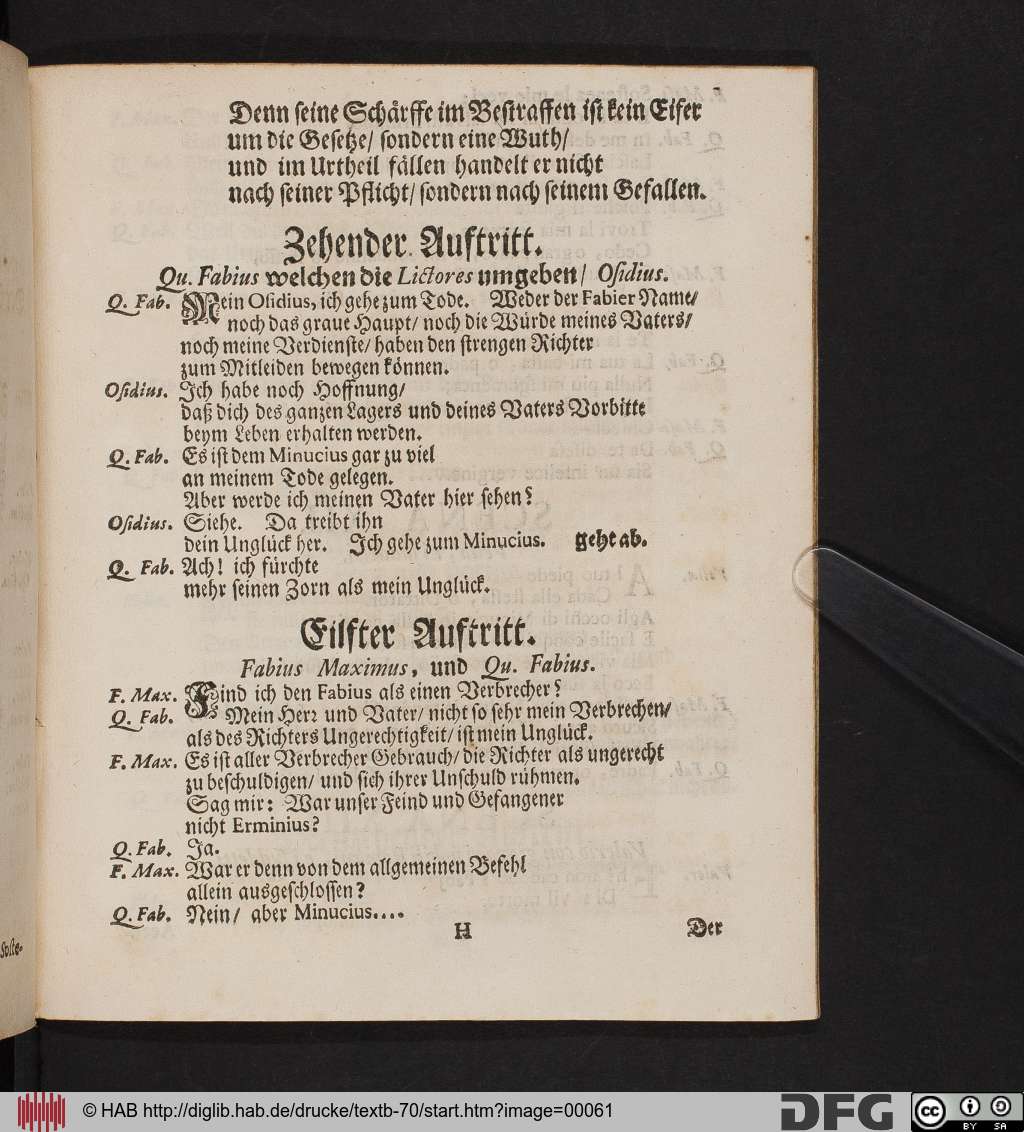 Denn seine Schärffe im Bestraffen ist kein Eifer
um die Gesetze/ sondern eine Wuth/
und im Urtheil fällen handelt er nicht
nach seiner Pflicht/ sondern nach seinem Gefallen.
Zehender Auftritt.
Qu. Fabius welchen die Lictores umgeben/ Osidius.
Q. Fab. Mein Osidius, ich gehe zum Tode. Weder der Fabier Name/
noch das graue Haupt/ noch die Würde meines Vaters/
noch meine Verdienste/ haben den strengen Richter
zum Mitleiden bewegen können.
Osidius. Ich habe noch Hoffnung/
daß dich des ganzen Lagers und deines Vaters Vorbitte
beym Leben erhalten werden.
Q. Fab. Es ist dem Minucius gar zu viel
an meinem Tode gelegen.
Aber werde ich meinen Vater hier sehen?
Osidius. Siehe. Da treibt ihn
dein Unglück her. Ich gehe zum Minucius. geht ab.
Q. Fab. Ach! ich fürchte
mehr seinen Zorn als mein Unglück.
Eilfter Auftritt.
Fabius Maximus, und Qu. Fabius.
F. Max. Find ich den Fabius als einen Verbrecher?
Q. Fab. Mein Herr und Vater/ nicht so sehr mein Verbrechen/
als des Richters Ungerechtigkeit/ ist mein Unglück.
F. Max. Es ist aller Verbrecher Gebrauch/ die Richter als ungerecht
zu beschuldigen/ und sich ihrer Unschuld rühmen.
Sag mir: War unser Feind und Gefangener
nicht Erminius?
Q. Fab. Ja.
F. Max. War er denn von dem allgemeinen Befehl
allein ausgeschlossen?
Q. Fab. Nein/ aber Minucius....
H Der
© HAB http://diglib.hab.de/drucke/textb-70/start.htm?image=00061
DFG
cc BY SA